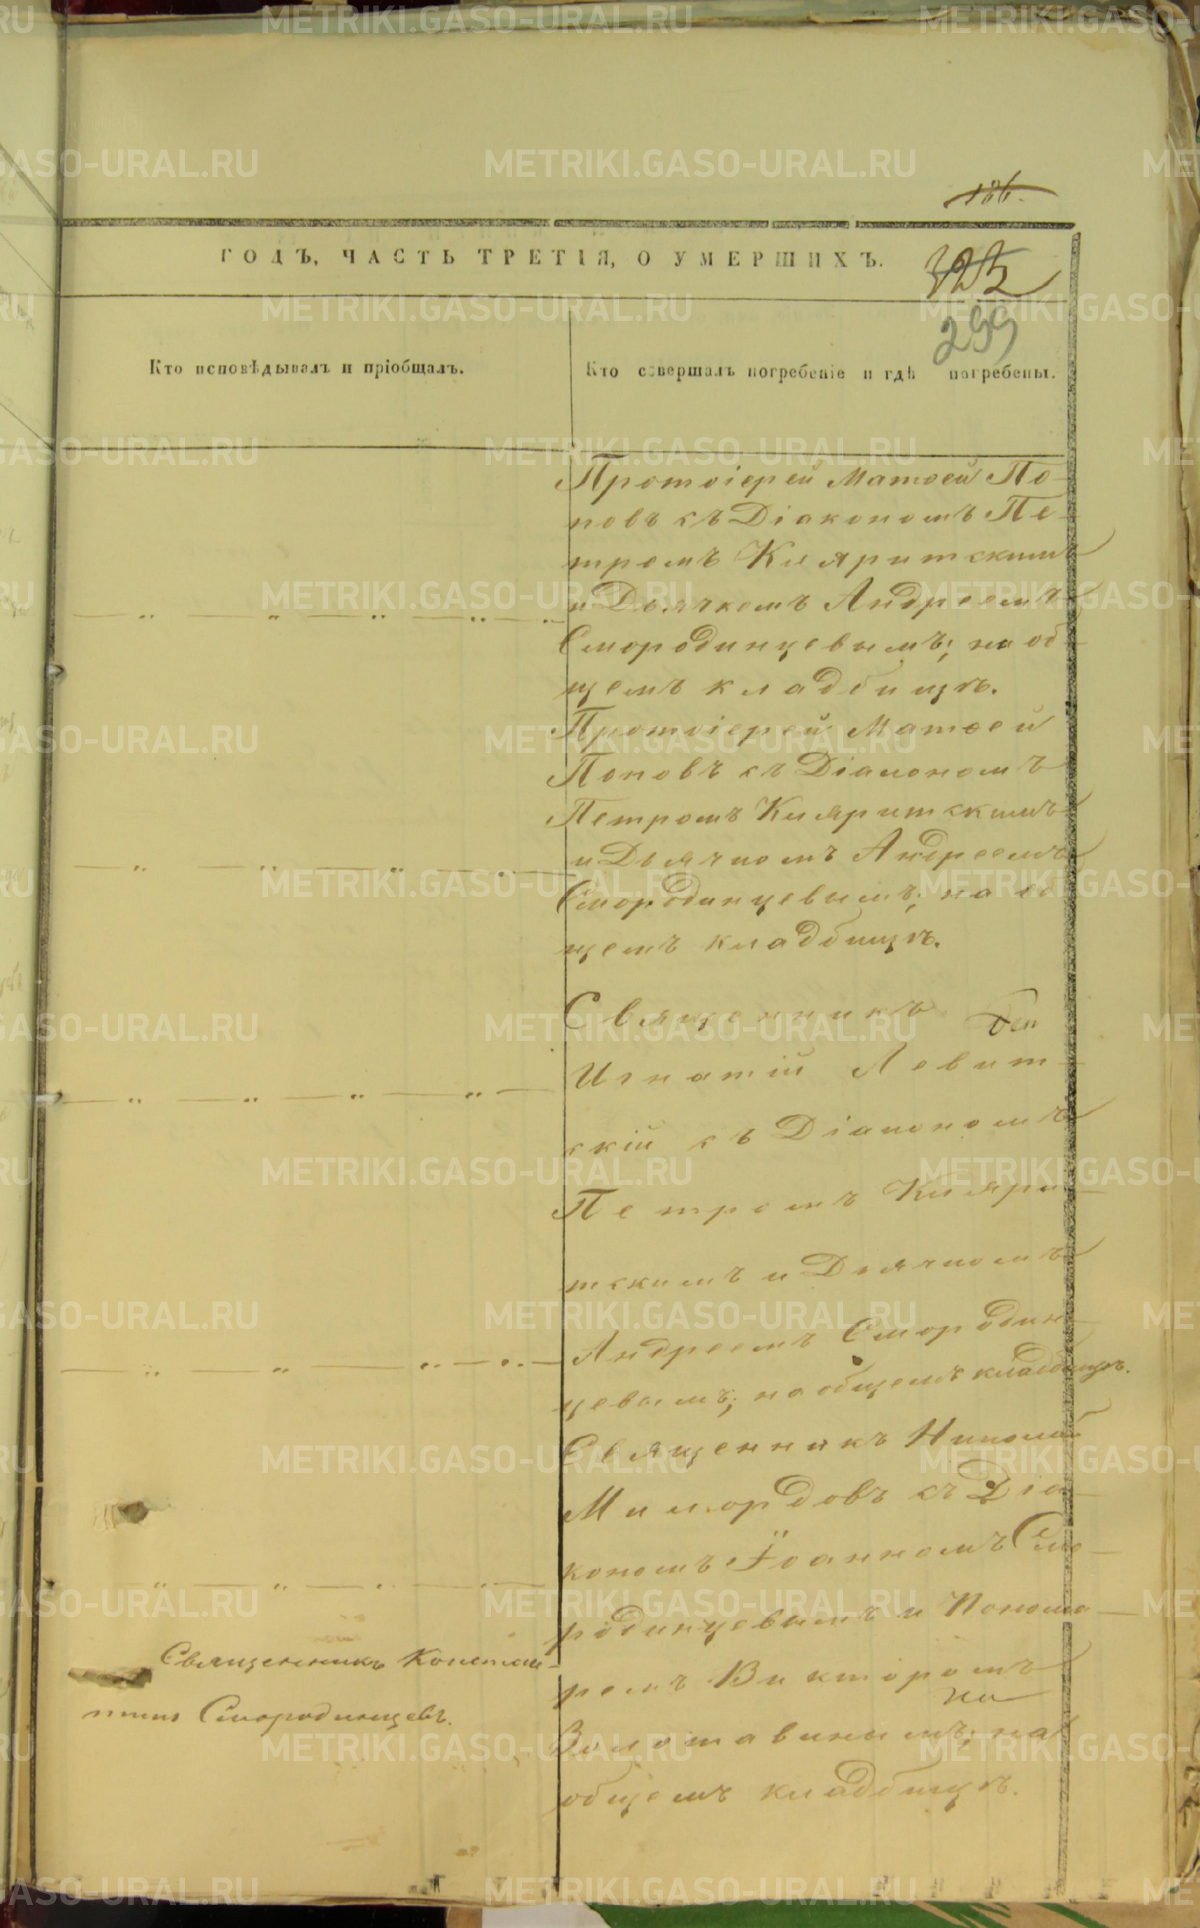 186.
ГОДЪ, ЧАСТЬ ТРЕТІЯ, О УМЕРШИХЪ.
325
299
Кто исповѣдывалъ и пріобщалъ.
Кто совершалъ погребеніе и гдѣ погребены.
Протоіерей Матѳей По-
повъ съ Діакономъ Пе-
тромъ Кляритскимъ
и Дьячкомъ Андреемъ
Смородинцевымъ; на об-
щемъ кладбищѣ.
Протоіерей Матѳей
Поповъ съ Діакономъ
Петромъ Кляритскимъ
и Дьячкомъ Андреемъ
Смородинцевымъ; на об-
щемъ кладбищѣ.
Священникъ
Игнатій Левит-
скій съ Діакономъ
Петромъ Кляри-
тскимъ и Дьячкомъ
Андреемъ Смородин-
цевымъ; на общемъ кладбищѣ.
Священникъ Николай
Милордовъ съ Діа-
кономъ Іоанномъ Смо-
родинцевымъ и Понома-
ремъ Викторомъ
Золотавинымъ; на
общемъ кладбищѣ.
Священникъ Констан-
тинъ Смородинцевъ.
METRIKI.GASO-URAL.RU